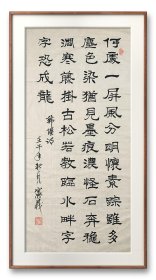 何處一屏風分明懷素踪雖多
塵色染猶見墨痕濃怪石奔秋
澗寒藤掛古松若教臨水畔字
字恐成龍
韓偓詩